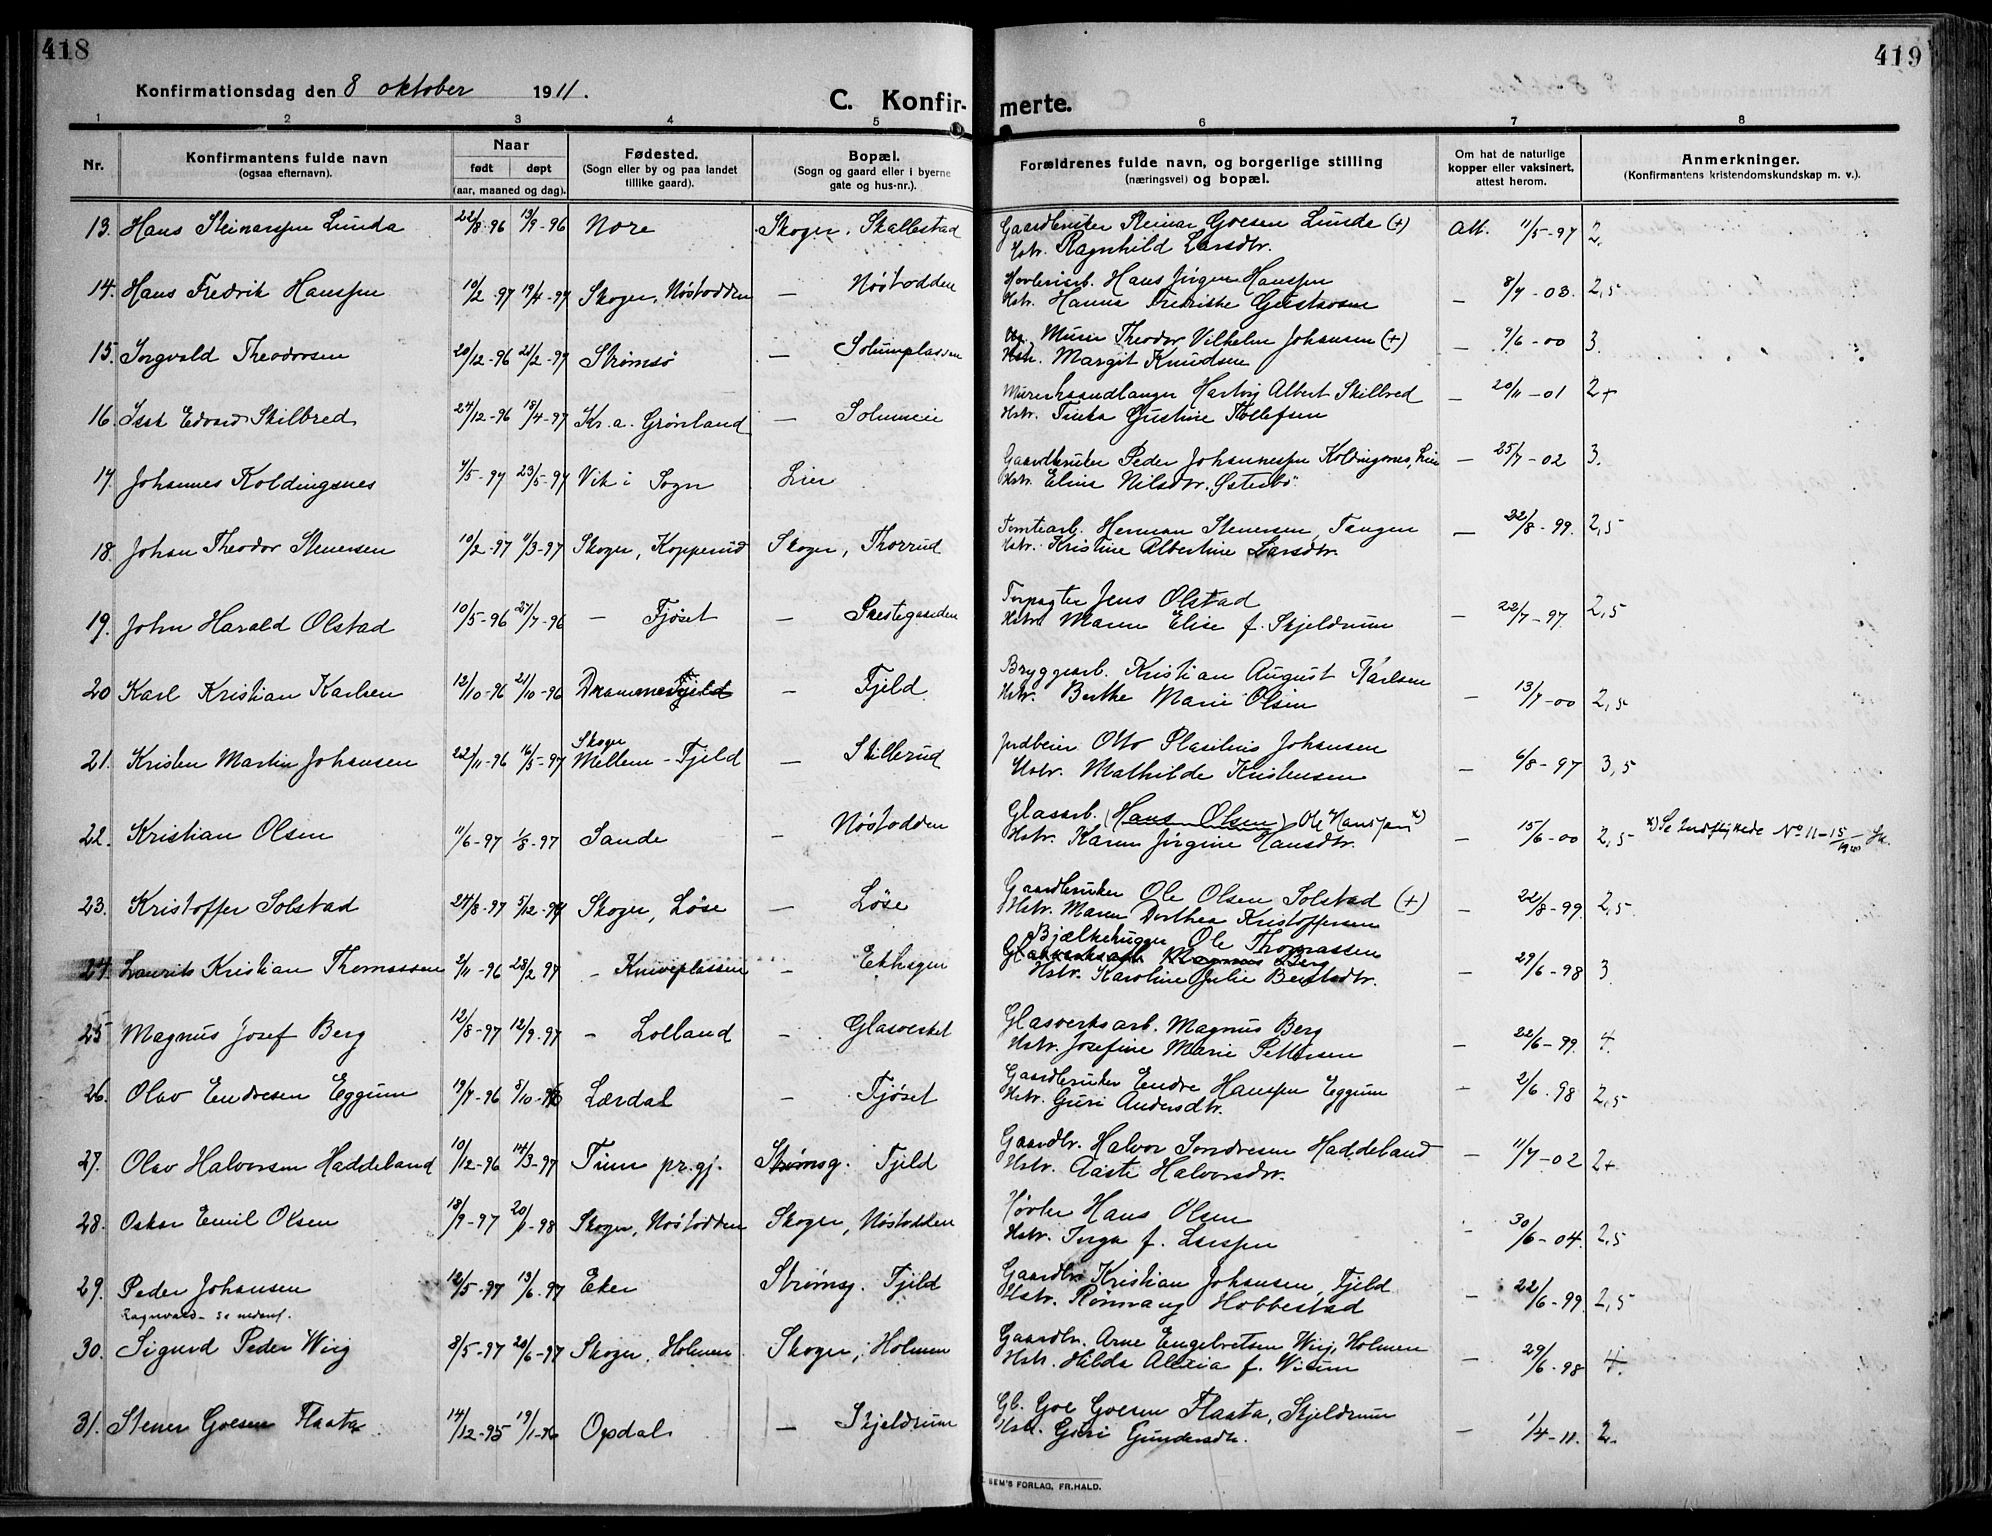 418
419
Konfirmationsdag den 8 oktober 1911.
C. Konfir- merte.
1 2 3 4 5 6 7 8
Nr.
Konfirmantens fulde navn
(ogsaa efternavn).
Naar
født døpt
(aar, maaned og dag).
Fødested.
(Sogn eller by og paa landet
tillike gaard).
Bopæl.
(Sogn og gaard eller i byerne
gate og hus-nr.).
Forældrenes fulde navn, og borgerlige stilling
(næringsvei) og bopæl.
Om hat de naturlige
kopper eller vaksinert,
attest herom.
Anmerkninger.
(Konfirmantens kristendomskundskap m. v.).
13. Hans Steinarssen Lunda 22/8-96 13/9-96 Nore Skoger. Skallestad Gaardbruker Steinar Goesen Lunda (+) Att. 11/5-97 2.
Hstr. Ragnhild Larsdtr.
14. Hans Fredrik Hanssen 10/2-97 19/4-97 Skoger, Nøstodden — Nøstodden Høvleriarb. Hans Jørgen Hanssen — 8/7-03. 2,5
Hstr. Hanna Fredrikke Gustavsen
15. Ingvald Theodorsen 20/12-96 21/2-97 Strømsø — Solumplassen Murer Theodor Vilhelm Johansen (+) — 9/6-00 3.
Hstr. Margit Knudsen
16. Isak Edvard Skilbred 24/12-96 18/4-97 Kr.a. Grønland — Solumeie Murerhaandlanger Hartvig Albert Skilbred — 20/11-01 2+
Hstr. Tinka Gustine Tollefsen
17. Johannes Koldingsnes 7/5-97 23/5-97 Vik i Sogn Lier Gaardbruker Peder Johannessen Koldingsnes, Lier — 25/7-02 3.
Hstr. Elina Nilsdtr. Østerbø
18. Johan Theodor Stenersen 10/2-97 11/3-97 Skoger, Kopperud Skoger, Thorrud Tomtearb. Herman Stenersen, Tangen — 22/8-99. 2,5
Hstr. Kristine Albertine Larsdtr.
19. John Harald Olstad 10/5-96 27/7-96 — Fjøset — Prestegaarden Forpagter Jens Olstad — 22/7-97. 2,5
Hstr. Maren Elise f. Skjeldrum
20 Karl Kristian Karlsen 12/10-96 21/10-96 Drammen Fjeld — Fjeld Bryggearb. Kristian August Karlsen — 13/7-00 2,5
Hstr. Berthe Marie Olsen
21. Kristen Martin Johansen 22/11-96 16/5-97 Skoger Mellem-Fjeld — Skillerud Indbeier Otto Plasilius Johansen — 6/8-97 3,5
Hstr. Mathilde Kristensen
22. Kristian Olsen 11/6-97 1/8-97 Sande — Nøstodden Glasarb. (Hans Olsen) Ole Hanssen x) — 15/6-00 2,5 x) Se Indstykkede No 11-15/1920
Hstr. Karen Jørgine Hansdtr.
23. Kristoffer Solstad 24/8-97 5/12-97 Skoger, Løse — Løse Gaardbruker Ole Olsen Solstad (+) — 22/8-99. 2,5
Hstr. Maren Dorthea Kristoffersen
24. Laurits Kristian Thomassen 2/11-96 28/2-97 — Kniveplassen — Ekhagen Bjælkehugger Ole Thomassen — 29/6-98 3
Glasverksarb. Magnus Berg
Hstr. Karoline Julie Berntsdtr.
25 Magnus Josef Berg 12/8-97 12/9-97 — Lolland — Glasverket Glasverksarb. Magnus Berg — 22/6-99. 4.
Hstr. Josefine Marie Pettersen
26. Olav Endresen Eggum 19/7-96 5/10-96 Lærdal — Fjøset Gaardbruker Endre Hanssen Eggum — 2/6.98 2,5
Hstr. Guri Andersdtr.
27. Olav Halvorsen Haddeland 10/12-96 14/3-97 Tinn pr.gj. Strømsg. Fjeld Gaardbr. Halvor Sondresen Haddeland — 11/7-02 2+
Hstr. Aaste Halvorsdtr.
28. Oskar Emil Olsen 18/9-97 20/1-98 Skoger, Nøstodden Skoger, Nøstodden Høvler Hans Olsen — 30/6-04. 2,5
Hstr. Inga f. Larssen
29. Peder Johansen 12/5-97 13/6-97 Eker Strømsg. Fjeld Gaardbr. Kristian Johansen, Fjeld — 22/6-99. 2,5
Hstr. Rønnaug Hobbestad
Ragnvald - se nedenf.
30. Sigurd Peder Wiig 8/5-97 20/6-97 Skoger, Holmen Skoger, Holmen Gaardbr. Arne Engebretsen Wiig, Holmen — 29/6-98 4.
Hstr. Hilda Alexia f. Wiium
31. Stener Goesen Flaata 14/12-95 19/1-96 Opdal — Skjeldrum Gb. Goe Goesen Flaata, Skjeldrum — 1/4-11. 2.
Hstr. Guri Gundersdtr.
SEM'S FORLAG, FR.HALD.